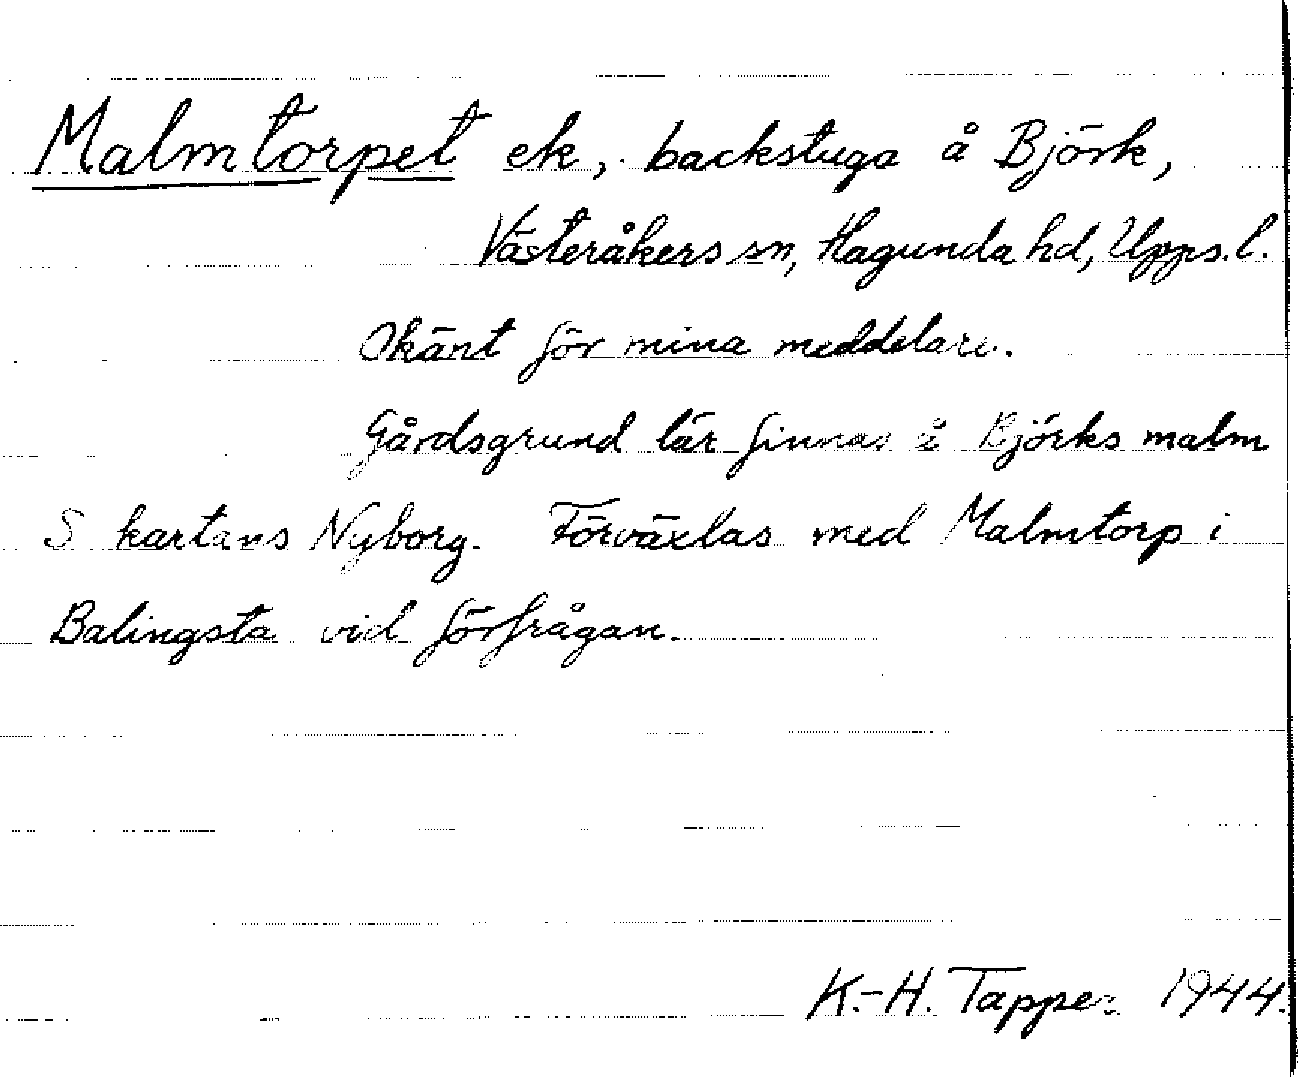 Malmtorpet ek, backstuga å Björk,
Västeråkers sn, Hagunda hd, Upps. l.
Okänt för mina meddelare.
Gårdsgrund lär finnas å Björks malm
S kartans Nyborg. Förväxlas med Malmtorp i
Balingsta vid förfrågan.
K.-H. Tapper 1944.